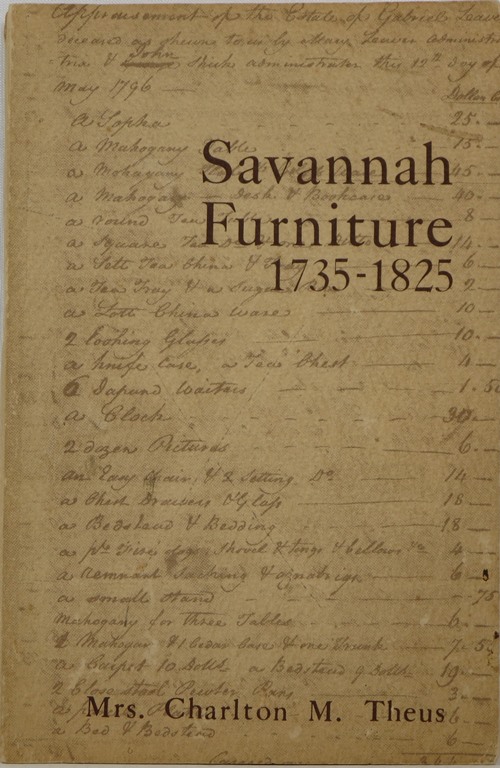 Appraisement of the Estate of Gabriel Leaver
deceased as shewn to us by Mary Leaver administra
trix & John administrator this 12th day of
May 1796
Dollars
a Sopha 25. —
a Mahogany Table 15. —
a Mahogany 45. —
a Mahogany Desk & Bookcase 40. —
a round Tea 8
a Square Tea 14. —
a Sett Tea China & 6 —
a Tea Tray & a Sugar 2
a Lott China ware 10 —
2 looking Glasses 10. —
a knife Case, a Tea Chest 4 —
6 Japand Waiters 1. 50
a Clock 30 —
2 dozen Pictures 6. —
an Easy Chair, & 2 Setting Do 14 —
a Chest Drawers & Glass 18
a Bedstead & Bedding 18 —
a pr. Fire dogs Shovel & tongs & bellows &c 4 —
a remnant Sacking & oznabrigs 6 —
a small Stand 75
Mahogany for three Tables 6. —
2 Mahogany & 1 Cedar Case & one Trunk 7. 5
a Carpet 10 Dolls. a Bedstead 9 Dolls. 19 —
2 Close stool Pewter Pans 3. —
a 6 —
a Bed & Bedstead 6 —
Savannah
Furniture
1735-1825
Mrs. Charlton M. Theus